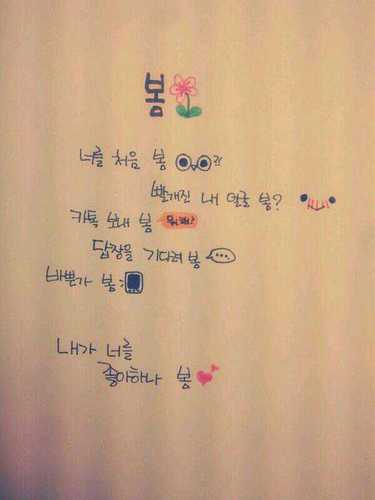 봄
너를 처음 봄
빨개진 내 얼굴 봄?
카톡 보내 봄 뭐해?
답장을 기다려 봄 ...
바쁜가 봄
내가 너를
좋아하나 봄